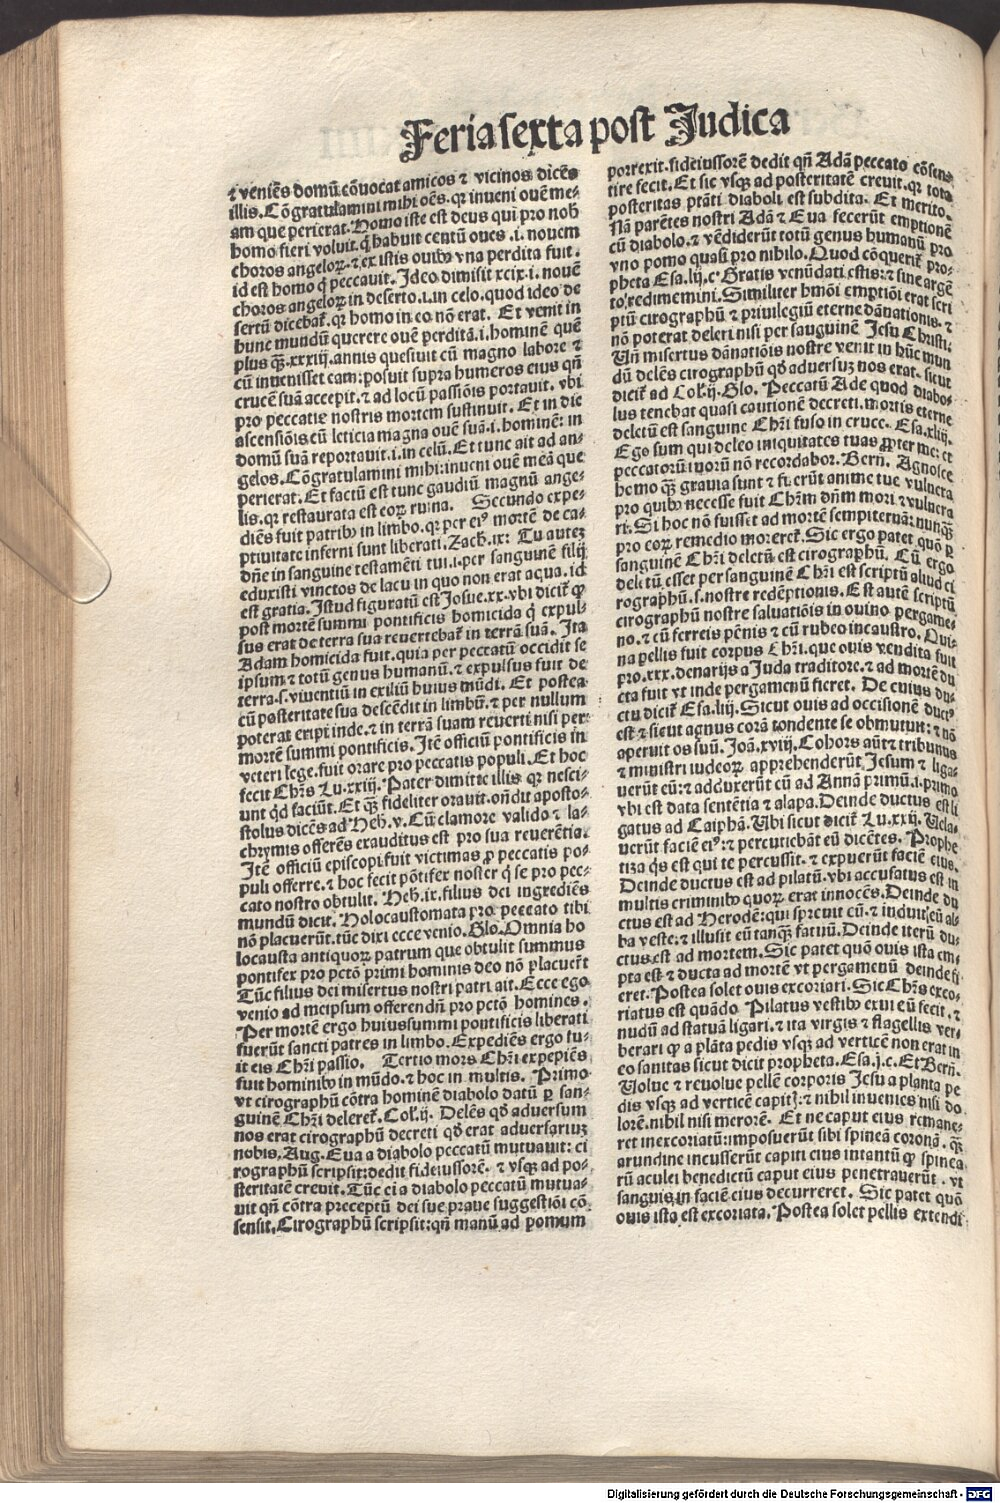 Feria sexta post Judica
⁊ veniēs domū cōuocat amicos ⁊ vicinos dicēs
illis. Cōgratulamini mihi oēs. qꝛ inueni ouē me-
am que perierat. Homo iste est deus qui pro nob̄
homo fieri voluit. q̄ habuit centū oues .i. nouem
choros angeloꝝ. ⁊ ex istis ouibꝰ vna perdita fuit.
id est homo q̇ peccauit. Ideo dimisit xcix.i. nouē
choros angeloꝝ in deserto.i. in celo. quod ideo de
sertū dicebat᷑. qꝛ homo in eo nō erat. Et venit in
hunc mundū querere ouē perditā.i. hominē quē
plus qꝫ .xxxiij. annis quesiuit cū magno labore ⁊
cū inuenisset eam: posuit supra humeros eius qn̄
crucē suā accepit. ⁊ ad locū passiōis portauit. vbi
pro peccatis nostris mortem sustinuit. Et in die
ascensiōis cū leticia magna ouē suā.i. hominē: in
domū suā reportauit.i. in celū. Et tunc ait ad an-
gelos. Cōgratulamini mihi: inueni ouē meā que
perierat. Et factū est tunc gaudiū magnū ange-
lis. qꝛ restaurata est eoꝝ ruina. Secundo expe-
diēs fuit patribꝰ in limbo. qꝛ per eiꝰ mortē de ca-
ptiuitate inferni sunt liberati. Zach. ix: Tu autez
dn̄e in sanguine testamēti tui.i. per sanguinē filij
eduxisti vinctos de lacu in quo non erat aqua. id
est gratia. Istud figuratū est Josue. xx. vbi dicit᷑ ꝙ
post mortē summi pontificis homicida q̇ expul-
sus erat de terra sua reuertebat᷑ in terrā suā. Ita
Adam homicida fuit. quia per peccatū occidit se
ipsum ⁊ totū genus humanū. ⁊ expulsus fuit de
terra.s. viuentiū in exiliū huius mūdi. Et postea
cū posteritate sua descēdit in limbū. ⁊ per nullum
poterat eripi inde. ⁊ in terrā suam reuerti nisi per
mortē summi pontificis. Itē officiū pontificis in
veteri lege. fuit orare pro peccatis populi. Et hoc
fecit Chr̄s Lu. xxiij. Pater dimitte illis qꝛ nesci-
unt qd̄ faciūt. Et qꝫ fideliter orauit. on̄dit aposto-
stolus dicēs ad Heb. v. Cū clamore valido ⁊ la-
chrymis offerēs exauditus est pro sua reuerētia.
Itē officiū episcopi fuit victimas ꝓ peccatis po-
puli offerre. ⁊ hoc fecit pōtifex noster q̇ se pro pec-
cato nostro obtulit. Heb. ix. filius dei ingrediēs
mundū dicit. Holocaustomata pro peccato tibi
nō placuerūt. tūc dixi ecce venio. Glo. Omnia ho
locausta antiquoꝝ patrum que obtulit summus
pontifex pro pctō primi hominis deo nō placuerūt
Tūc filius dei misertus nostri patri ait. Ecce ego
venio ad meipsum offerendū pro pctō homines.
Per mortē ergo huius summi pontificis liberati
fuerūt sancti patres in limbo. Expediēs ergo fu-
it eis Chr̄i passio. Tertio mors Chr̄i expepiēs
fuit hominibꝰ in mūdo. ⁊ hoc in multis. Primo
vt cirographū cōtra hominē diabolo datū ꝑ san-
guinē Chr̄i deleret᷑. Col. ij. Delēs qd̄ aduersum
nos erat cirographū decreti qd̄ erat aduersariuz
nobis. Aug. Eua a diabolo peccatū mutuauit: ci
rographū scripsit: dedit fideiussorē. ⁊ vsqꝫ ad po-
steritatē creuit. Tūc ei a diabolo peccatū mutua-
uit qn̄ cōtra preceptū dei sue praue suggestiōi cō-
sensit. Cirographū scripsit: qn̄ manū ad pomum
porrexit. fideiussorē dedit qn̄ Adā peccato cōsen-
tire fecit. Et sic vsqꝫ ad posteritatē creuit. qꝛ tota
posteritas ptāti diaboli est subdita. Et merito.
Nā parētes nostri Adā ⁊ Eua fecerūt emptionē
cū diabolo. ⁊ vēdiderūt totū genus humanū pro
vno pomo quasi pro nihilo. Quod cōquerit᷑ pro-
pheta Esa. lij. c. Gratis venūdati estis: ⁊ sine argē
to redimemini. Similiter hmōi emptiōi erat scri
ptū cirographū ⁊ priuilegiū eterne dānationis. ⁊
nō poterat deleri nisi per sanguinem Jesu Christi.
Vn̄ misertus dānatiōis nostre venit in hūc mun
dū delēs cirographū qd̄ aduersuz nos erat. sicut
dicit᷑ ad Col. ij. Glo. Peccatū Ade quod diabo-
lus tenebat quasi cautionē decreti mortis eterne
deletū est sanguine Chr̄i fuso in cruce. Esa. xliij.
Ego sum qui deleo iniquitates tuas ꝓpter me: et
peccatorū tuorū nō recordabor. Bern. Agnosce
homo qꝫ grauia sunt ⁊ fuerūt anime tue vulnera
pro quibꝰ necesse fuit Chr̄m dn̄m mori ⁊ vulnera
ri. Si hoc nō fuisset ad mortē sempiternā: nunqꝫ
pro eoꝝ remedio moreret᷑. Sic ergo patet quō ꝑ
sanguinē Chr̄i deletū est cirographū. Cū ergo
deletū esset per sanguinē Chr̄i est scriptū aliud ci
rographū.s. nostre redēptionis. Est autē scriptū
cirographū nostre saluatiōis in ouino pergame-
no. ⁊ cū ferreis pēnis ⁊ cū rubeo incausto. Oui-
na pellis fuit corpus Chr̄i. que ouis vendita fuit
pro .xxx. denarijs a Juda traditore. ⁊ ad mortē du
cta fuit vt inde pergamenū fieret. De cuius du-
ctu dicit᷑ Esa. liij. Sicut ouis ad occisionē ductꝰ
est ⁊ sicut agnus corā tondente se obmutuit: ⁊ nō
aperuit os suū. Joā. xviij. Cohors aūt ⁊ tribunus
⁊ ministri iudeoꝝ apprehenderūt Jesum ⁊ liga-
uerūt eū: ⁊ adduxerūt eū ad Annā primū.i. primo
vbi est data sentētia ⁊ alapa. Deinde ductus est li
gatus ad Caiphā. Vbi sicut dicit᷑ Lu. xxij. Uela-
uerūt faciē eiꝰ: ⁊ percutiebāt eū dicētes. Prophe
tiza q̇s est qui te percussit. ⁊ expuerūt faciē eius.
Deinde ductus est ad pilatū. vbi accusatus est in
multis criminibꝰ quoꝝ erat innocēs. Deinde du
ctus est ad Herodē: qui spreuit eū. ⁊ induit eū al-
ba veste: ⁊ illusit eū tanqꝫ fatuū. Deinde iterū du-
ctus est ad mortem. Sic patet quō ouis ista em-
pta est ⁊ ducta ad mortē vt pergamenū deinde fi
eret. Postea solet ouis excoriari. Sic Chr̄s exco-
riatus est quādo Pilatus vestibꝰ exui eū fecit. ⁊
nudū ad statuā ligari. ⁊ ita virgis ⁊ flagellis ver-
berari ꝙ a plāta pedis vsqꝫ ad verticē non erat in
eo sanitas sicut dicit propheta. Esa. j. c. Et Bern.
Uolue ⁊ reuolue pellē corporis Jesu a planta pe
dis vsqꝫ ad verticē capitꝭ: ⁊ nihil inuenies nisi do
lorē. nihil nisi merorē. Et ne caput eius remane-
ret inexcoriatū: imposuerūt sibi spineā coronā. qꝫ
arundine incusserūt capiti eius intantū ꝙ spinea
rū aculei benedictū caput eius penetrauerūt. vt
sanguis in faciē eius decurreret. Sic patet quō
ouis ista est excoriata. Postea solet pellis extendi
Digitalisierung gefördert durch die Deutsche Forschungsgemeinschaft - DFG